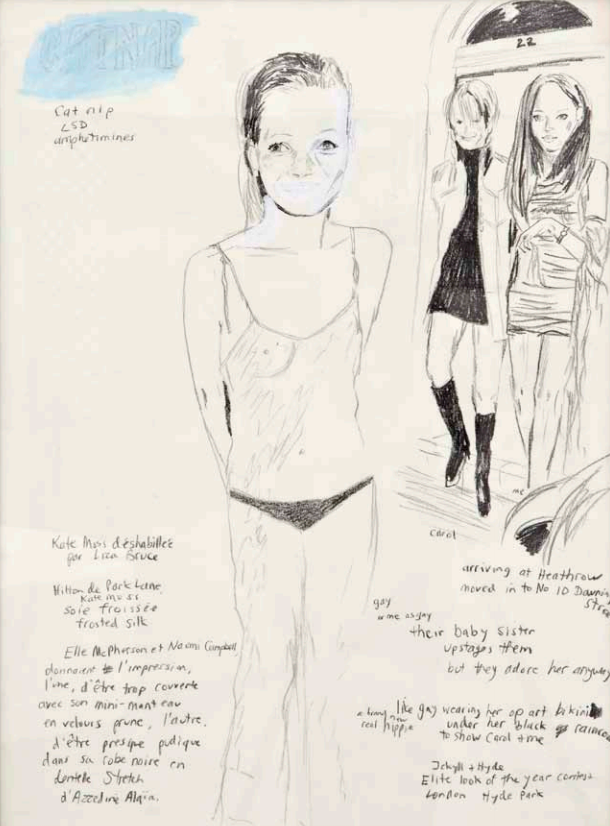 CATNAP
Cat nip
LSD
amphetimines
22
me
Carol
Kate Moss déshabillée
par Liza Bruce
Hilton de Park Lane,
Kate Moss
soie froissée
frosted silk
Elle McPherson et Naomi Campbell
donnaient l'impression,
l'une, d'être trop couverte
avec son mini-manteau
en velours prune, l'autre,
d'être presque pudique
dans sa robe noire en
dentelle Stretch
d'Azzedine Alaïa.
arriving at Heathrow
moved in to No 10 Downing
Street
gay
their baby sister
upstages them
but they adore her anyway
like gay wearing her op art bikini
real hippie
under her black
to show Carol + me
Jekyll + Hyde
Elite look of the year contest
London Hyde Park